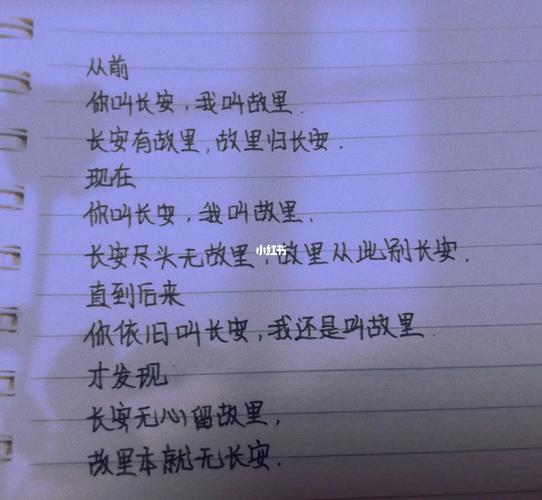 从前
你叫长安,我叫故里.
长安有故里,故里归长安.
现在
你叫长安,我叫故里.
长安尽头无故里,故里从此别长安.
小红书
直到后来
你依旧叫长安,我还是叫故里.
才发现
长安无心留故里,
故里本就无长安.